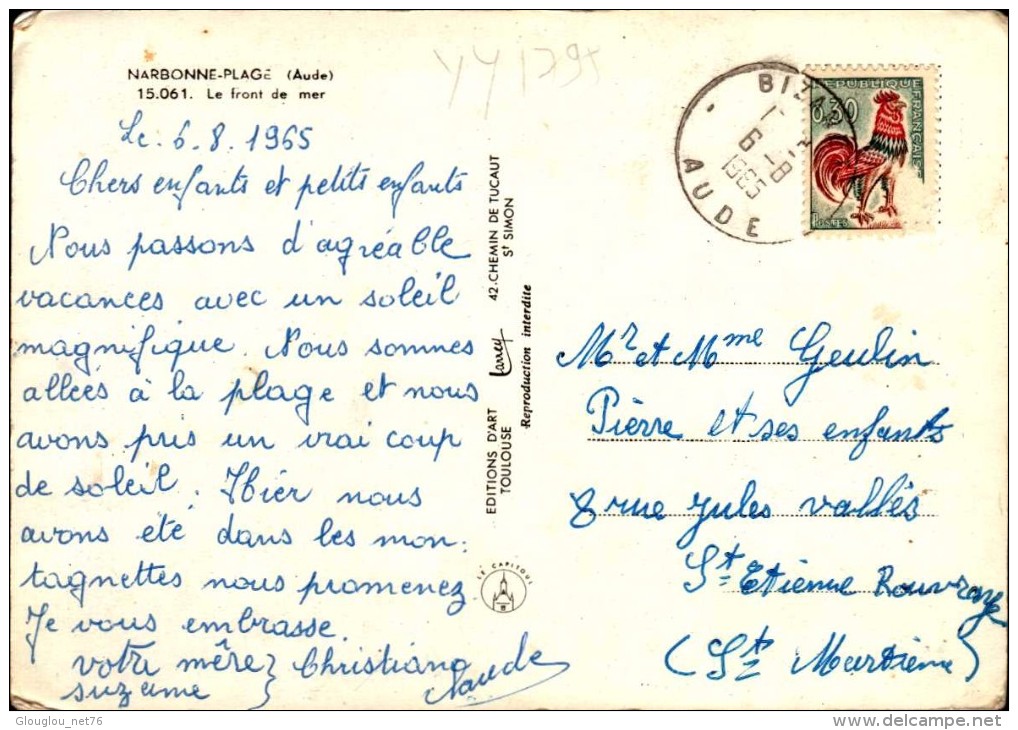 YY1795
NARBONNE-PLAGE (Aude)
15.061. Le front de mer
Le. 6. 8. 1965
Chers enfants et petits enfants
Nous passons d'agréable
vacances avec un soleil
magnifique. Nous somnes
allées à la plage et nous
avons pris un vrai coup
de soleil. Hier nous
avons été dans les mon:
tagnettes nous promenez
Je vous embrasse.
votre mère } Christiane
suzanne
EDITIONS D'ART Larrey 42.CHEMIN DE TUCAUT
TOULOUSE ST SIMON
Reproduction interdite
LE CAPITOUL
6-8
1965
AUDE
REPUBLIQUE FRANÇAISE
0,30
POSTES
Mr et Mme Geulin
Pierre et ses enfants
8 rue jules vallès
St Etienne Rouvray
Glouglou_net76
www.delcampe.net